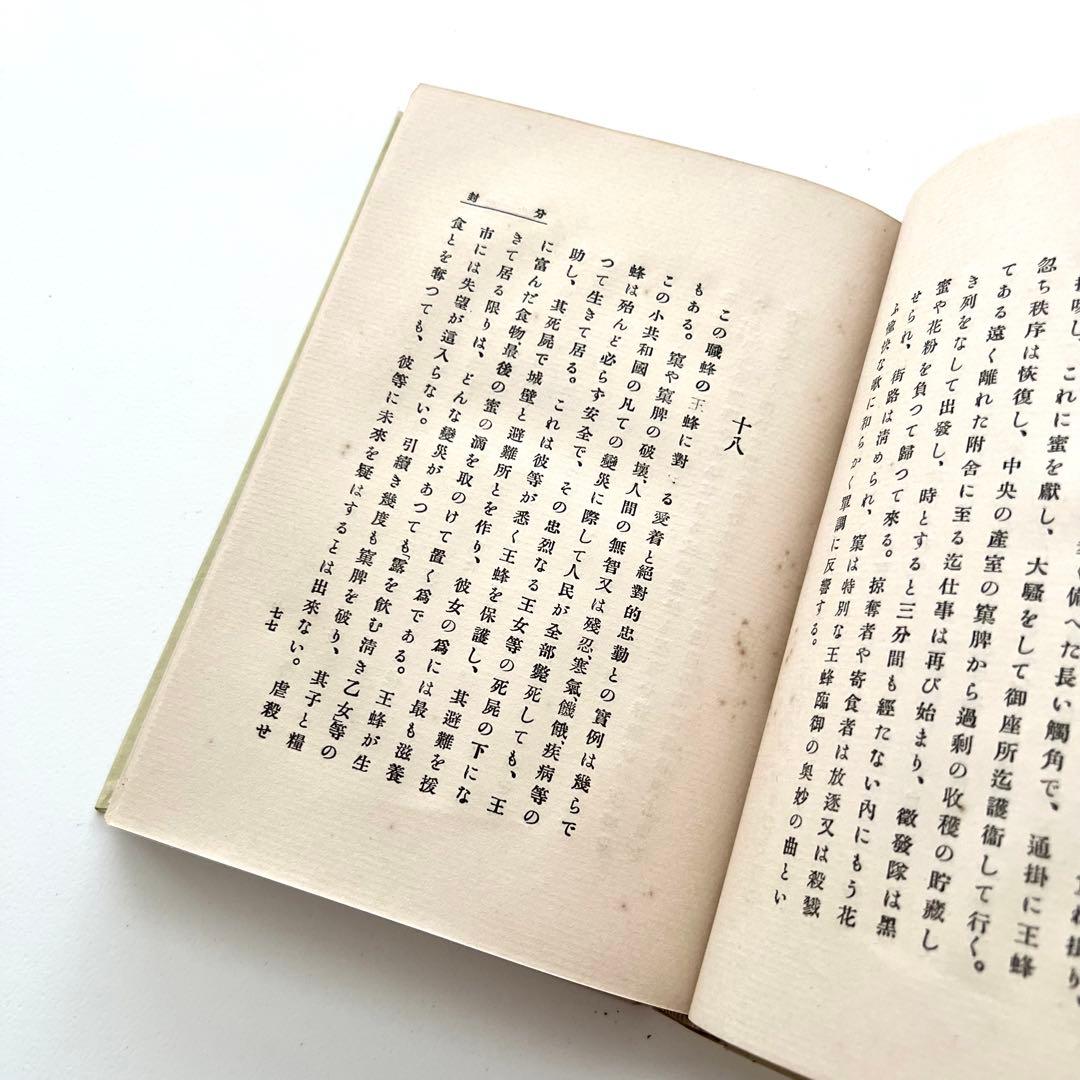 忽ち秩序は恢復し、中央の産室の窠脾から過剩の收穫の貯藏し
てある遠く離れた附舍に至る迄仕事は再び始まり、徴發隊は黑
き列をなして出發し、時とすると三分間も經たない內にもう花
蜜や花粉を負つて歸つて來る。掠奪者や寄食者は放逐又は殺戮
せられ、街路は淸められ、窠は特別な王蜂臨御の奥妙の曲とい
ふ な歌に和らかく單調に反響する。
これに蜜を獻し、大騷をして御座所迄護衞して行く。
備へた長い觸角で、通掛に王蜂
十八
この職蜂の王蜂に對 る愛着と絕對的忠勤との實例は幾らで
もある。窠や窠脾の破壞、人間の無智又は殘忍、寒氣、饑餓、疾病等の
この小共和國の凡ての變災に際して人民が全部斃死しても、王
蜂は殆んど必らず安全で、その忠烈なる王女等の死屍の下にな
つて生きて居る。これは彼等が悉く王蜂を保護し、其避難を援
助し、其死屍で城壁と避難所とを作り、彼女の爲には最も滋養
に富んだ食物最後の蜜の滴を取のけて置く爲である。王蜂が生
きて居る限りは、どんな變災があつても「露を飮む淸き乙女」等の
市には失望が這入らない。引續き幾度も窠脾を破り、其子と糧
食とを奪つても、彼等に未來を疑はすることは出來ない。虐殺せ
分封
七七